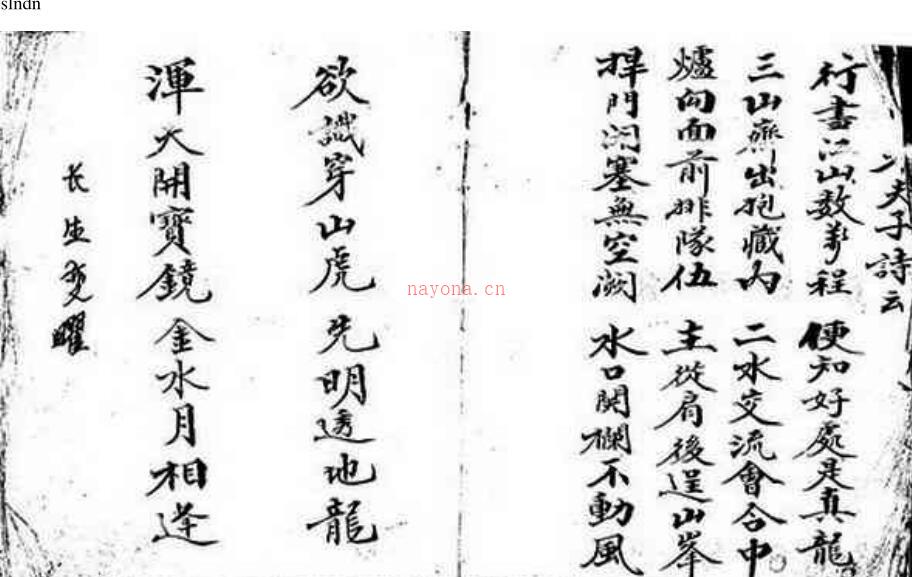 slndn
夫子詩云
行書江山数萬程 便知好處是真龍
三山齊出抱藏内 二水交流會合中
爐向面前排隊伍 主從肩後逞山峯
捍門閉塞無空闕 水口関欄不動風
欲識穿山虎 先明透地龍
渾天開寶鏡 金水月相逢
长生 曜
nayona.cn